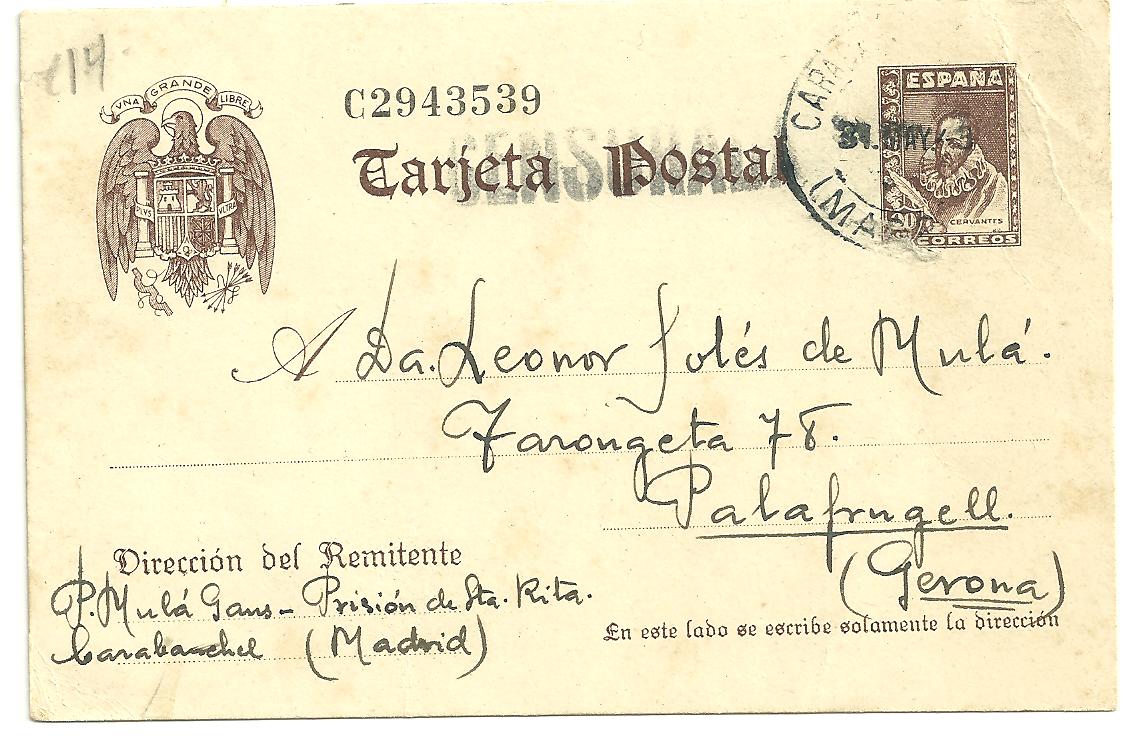 UNA GRANDE LIBRE
C2943539
Tarjeta Postal
CENSURA
PLVS VLTRA
CARABA
31. MAY. 43
(MA
ESPAÑA
CERVANTES
CORREOS
A Da. Leonor Jolés de Mulá.
Tarongeta 78.
Palafrugell.
(Gerona)
Dirección del Remitente
P. Mulá Gans - Prisión de Sta. Rita.
Carabanchel (Madrid)
En este lado se escribe solamente la dirección